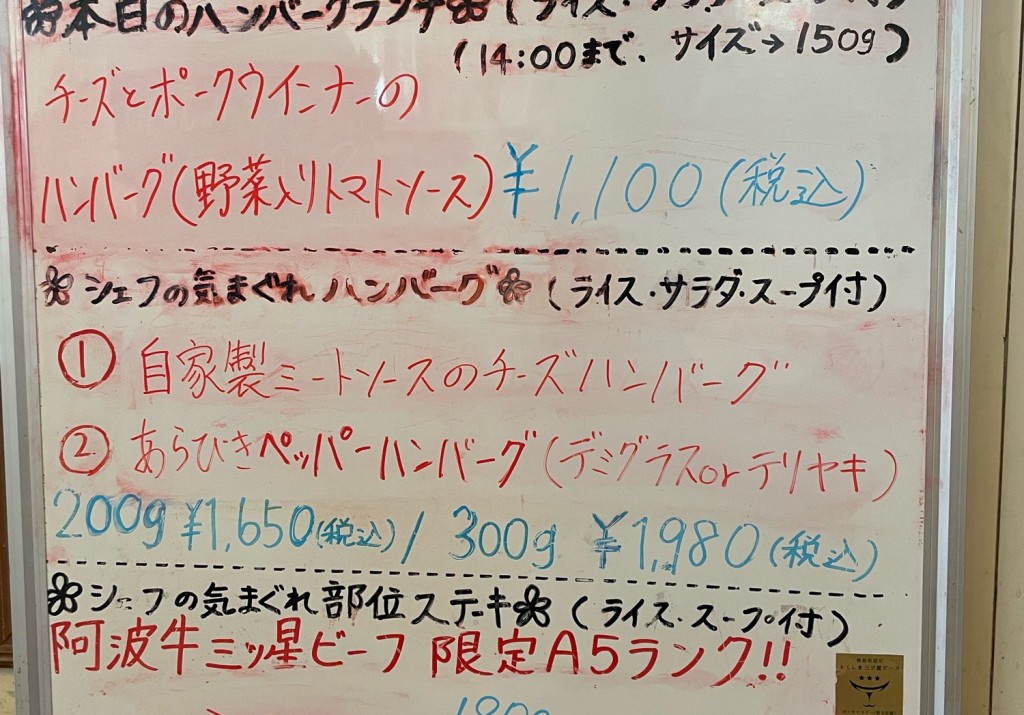 本日のハンバーグランチ(ライス・サラダ・スープ付)
(14:00まで、サイズ→150g)
チーズとポークウインナーの
ハンバーグ(野菜入りトマトソース)¥1,100(税込)
シェフの気まぐれハンバーグ(ライス・サラダ・スープ付)
① 自家製ミートソースのチーズハンバーグ
② あらびきペッパーハンバーグ(デミグラスorテリヤキ)
200g ¥1,650(税込)/ 300g ¥1,980(税込)
シェフの気まぐれ部位ステーキ(ライス・スープ付)
阿波牛三ッ星ビーフ 限定A5ランク!!
180g